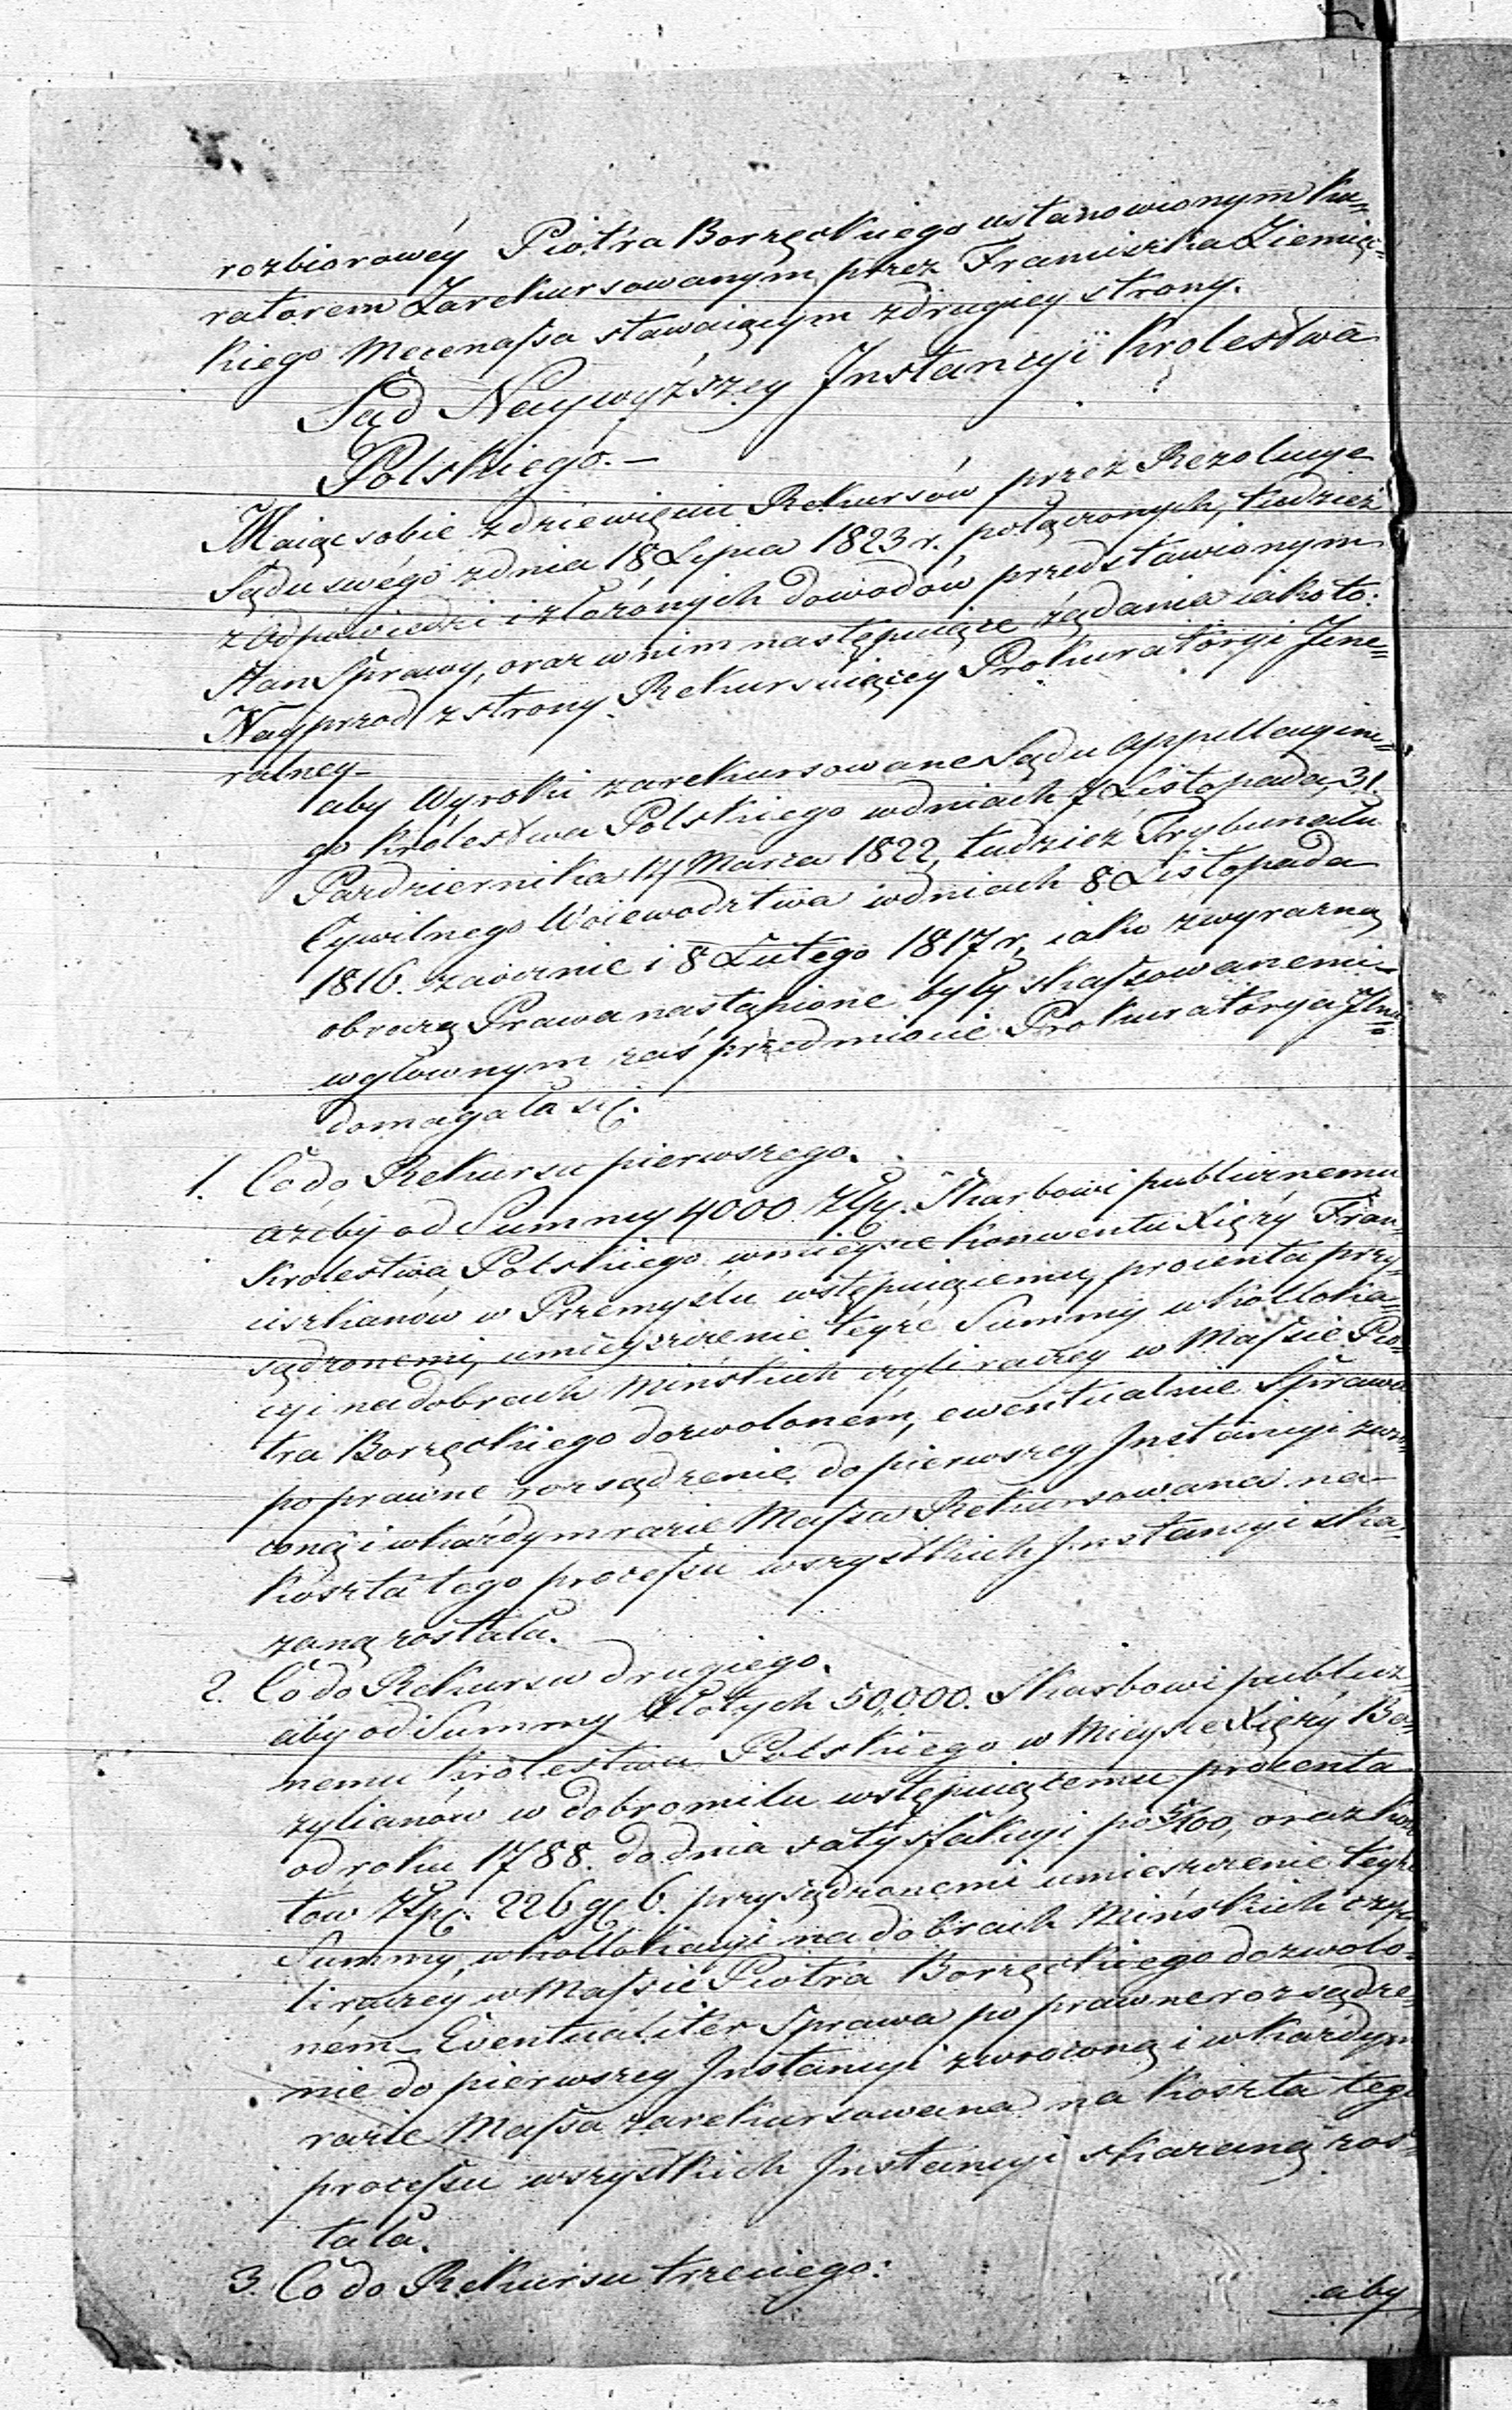 rozbiorowéy Piotra Borzęckiego ustanowionym Ku=
ratorem Zarekursowanym przez Franciszka Ziemięc=
kiego Mecenassa stawaiącym z drugiey strony.
Sąd Naywyższey Instancyi Krolestwa
Polskiego.—
Maiąc sobie z dziewięciu Rekursów przez Rezolucye
Sądu swégo z dnia 18 Lipca 1823 r. połączonych, tudzież
z Odpowiedzi i złożonych dowodów przedstawionym
Stan Sprawy, oraz w nim następuiące żądania iako to:
Nayprzod z strony Rekursuiącey Prokuratoryi Jene=
ralney—
aby Wyroki zarekursowane Sądu Appellacyine=
go Królestwa Polskiego w dniach 7 Listopada, 31
Pazdziernika, 14 Marca 1822, tudzież Trybunału
Cywilnego Woiewodztwa w dniach 8 Listopada
1816. zaocznie i 8 Lutego 1817 r. iako z wyrazną
obrazą Prawa nastąpione były skassowanemi—
w głownym zaś przedmiocie Prokuratorya Jlna
domagała się.
1. Co do Rekursu pierwszego.
ażeby od Summy 4000 Złp. Skarbowi publicznemu
Krolestwa Polskiego w mieysce Konwentu Xięży Fran=
ciszkanów w Przemyslu wstępuiącemu, procenta przy=
sądzonemi, umieyszczenie teyże Summy w kolloka=
cyi na dobrach Mińskich czyli raczey w Massie Pio=
tra Borzęckiego dozwolonem, ewentualnie Sprawa
po prawne rozsądzenie do pierwszey Instancyi zwró=
coną i w każdym razie Massa Rekursowana na—
Koszta tego processu wszystkich Instancyi ska=
zaną została.
2. Co do Rekursu drugiego.
aby od Summy Złotych 50,000. Skarbowi publicz=
nemu Królestwa Polskiego w Mieysce Xięży Ba=
zylianów w dobromilu wstępuiącemu procenta
od roku 1788. do dnia satysfakcyi po 5/100, oraz kosz
tow Złp. 226 gr 6. przysądzonemi umieszczenie teyże
Summy, w kollokacyi na dobrach Mińskich czy=
li raczey w Massie Piotra Borzęckiego dozwolo=
ném— Eventualiter Sprawa po prawne rozsądze=
nie do pierwszey Instancyi zwroconą i w każdym
razie Massa zarekursowana na Koszta tego
processu wszystkich Instancyi skazaną zos=
tała.
3. Co do Rekursu trzeciego:
aby